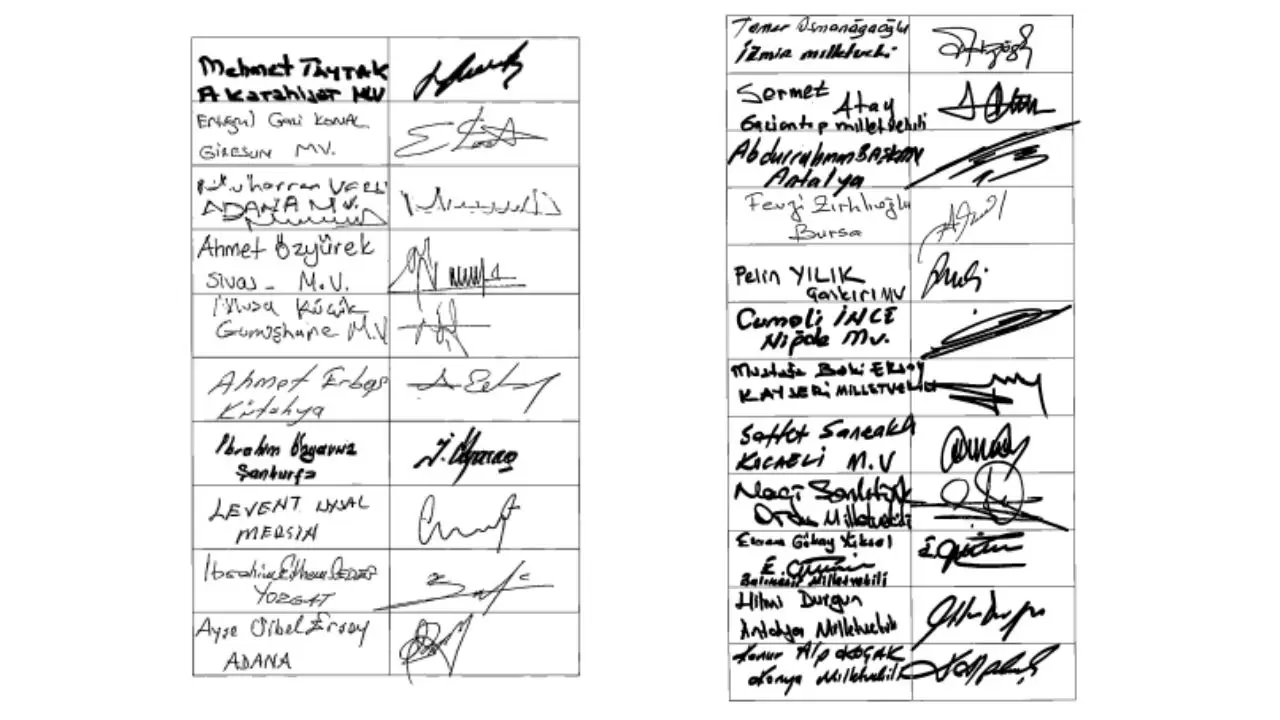 Mehmet TAYTAK
A Karahisar MV
Ertuğrul Gazi KONAL
GİRESUN MV.
Muharrem VARLI
ADANA M.V.
Ahmet Özyürek
SİVAS - M.V.
Musa Küçük
Gümüşhane M.V
Ahmet Erbaş
Kütahya
İbrahim Özyavuz
Şanlıurfa
LEVENT UYSAL
MERSİN
İbrahim Ethem SEDEF
YOZGAT
Ayşe Sibel Ersoy
ADANA
Tamer Osmanağaoğlu
İzmir milletvekili
Sermet Atay
Gaziantep milletvekili
Abdurrahman BAŞKAN
Antalya
Fevzi Zırhlıoğlu
Bursa
Pelin YILIK
Çankırı MV
Cumali İNCE
Niğde Mv.
Mustafa Baki ERSOY
KAYSERİ MİLLETVEKİLİ
Saffet Sancaklı
KOCAELİ M.V
Naci Şanlıtürk
Ordu Milletvekili
Ekrem Gökay Yüksel
Balıkesir Milletvekili
Hilmi Durgun
Antalya Milletvekili
Konur Alp KOÇAK
Konya Milletvekili